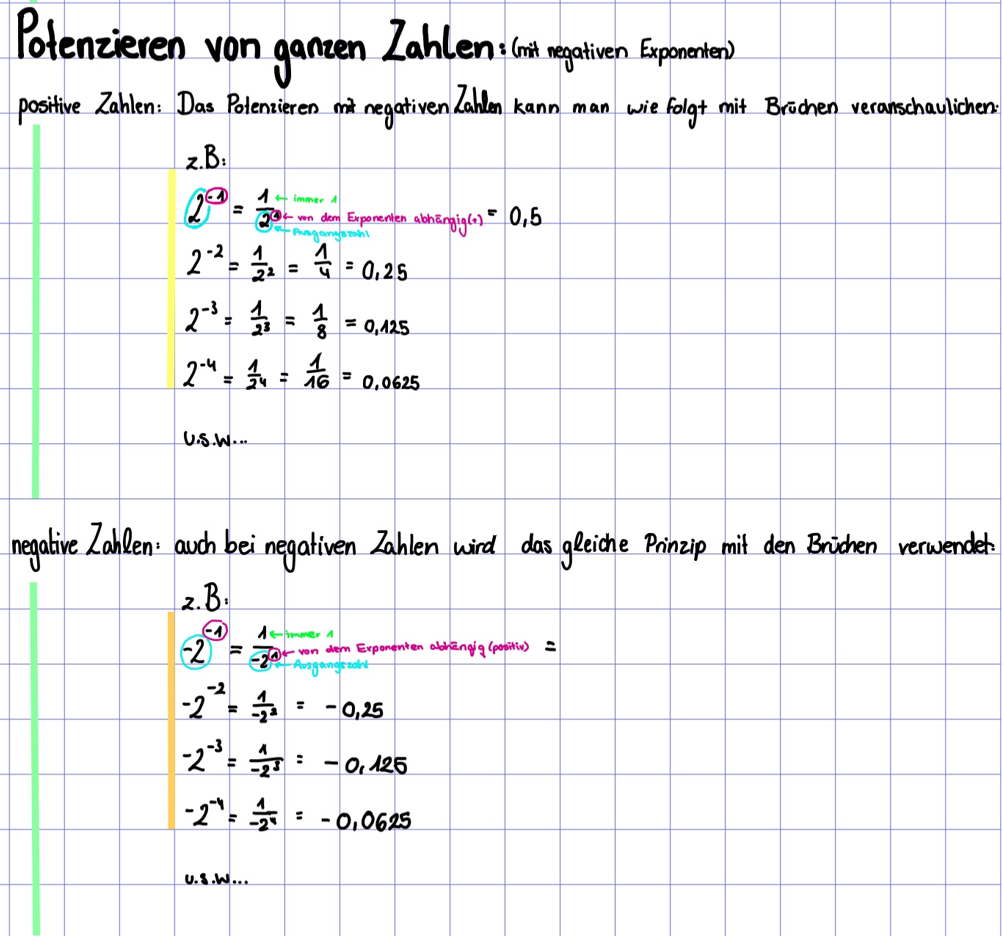 Potenzieren von ganzen Zahlen: (mit negativen Exponenten)
positive Zahlen: Das Potenzieren mit negativen Zahlen kann man wie folgt mit Brüchen veranschaulichen:
z.B:
2⁻¹ = 1/2¹ ← immer 1 ← von dem Exponenten abhängig(+) ← Ausgangszahl = 0,5
2⁻² = 1/2² = 1/4 = 0,25
2⁻³ = 1/2³ = 1/8 = 0,125
2⁻⁴ = 1/2⁴ = 1/16 = 0,0625
u.s.w...
negative Zahlen: auch bei negativen Zahlen wird das gleiche Prinzip mit den Brüchen verwendet:
z.B:
-2⁻¹ = 1/-2¹ ← immer 1 ← von dem Exponenten abhängig (positiv) ← Ausgangszahl =
-2⁻² = 1/-2² = -0,25
-2⁻³ = 1/-2³ = -0,125
-2⁻⁴ = 1/-2⁴ = -0,0625
u.s.w...